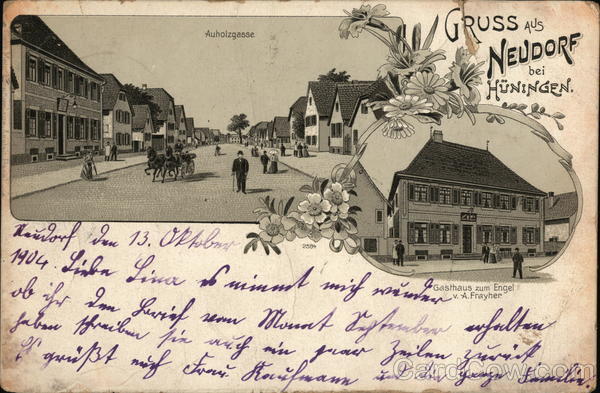 Auholzgasse
GRUSS AUS
NEUDORF
bei
HÜNINGEN.
2584
Gasthaus zum Engel
v. A. Frayher
Neudorf den 13. Oktober
1904. Liebe Lina es nimmt mich wunder
ob ihr den Brief vom Monat September erhalten
haben schreiben sie auch ein paar Zeilen zurück
Es grüßt euch Frau Kaufmann und die ganze Familie.
CardCow.com